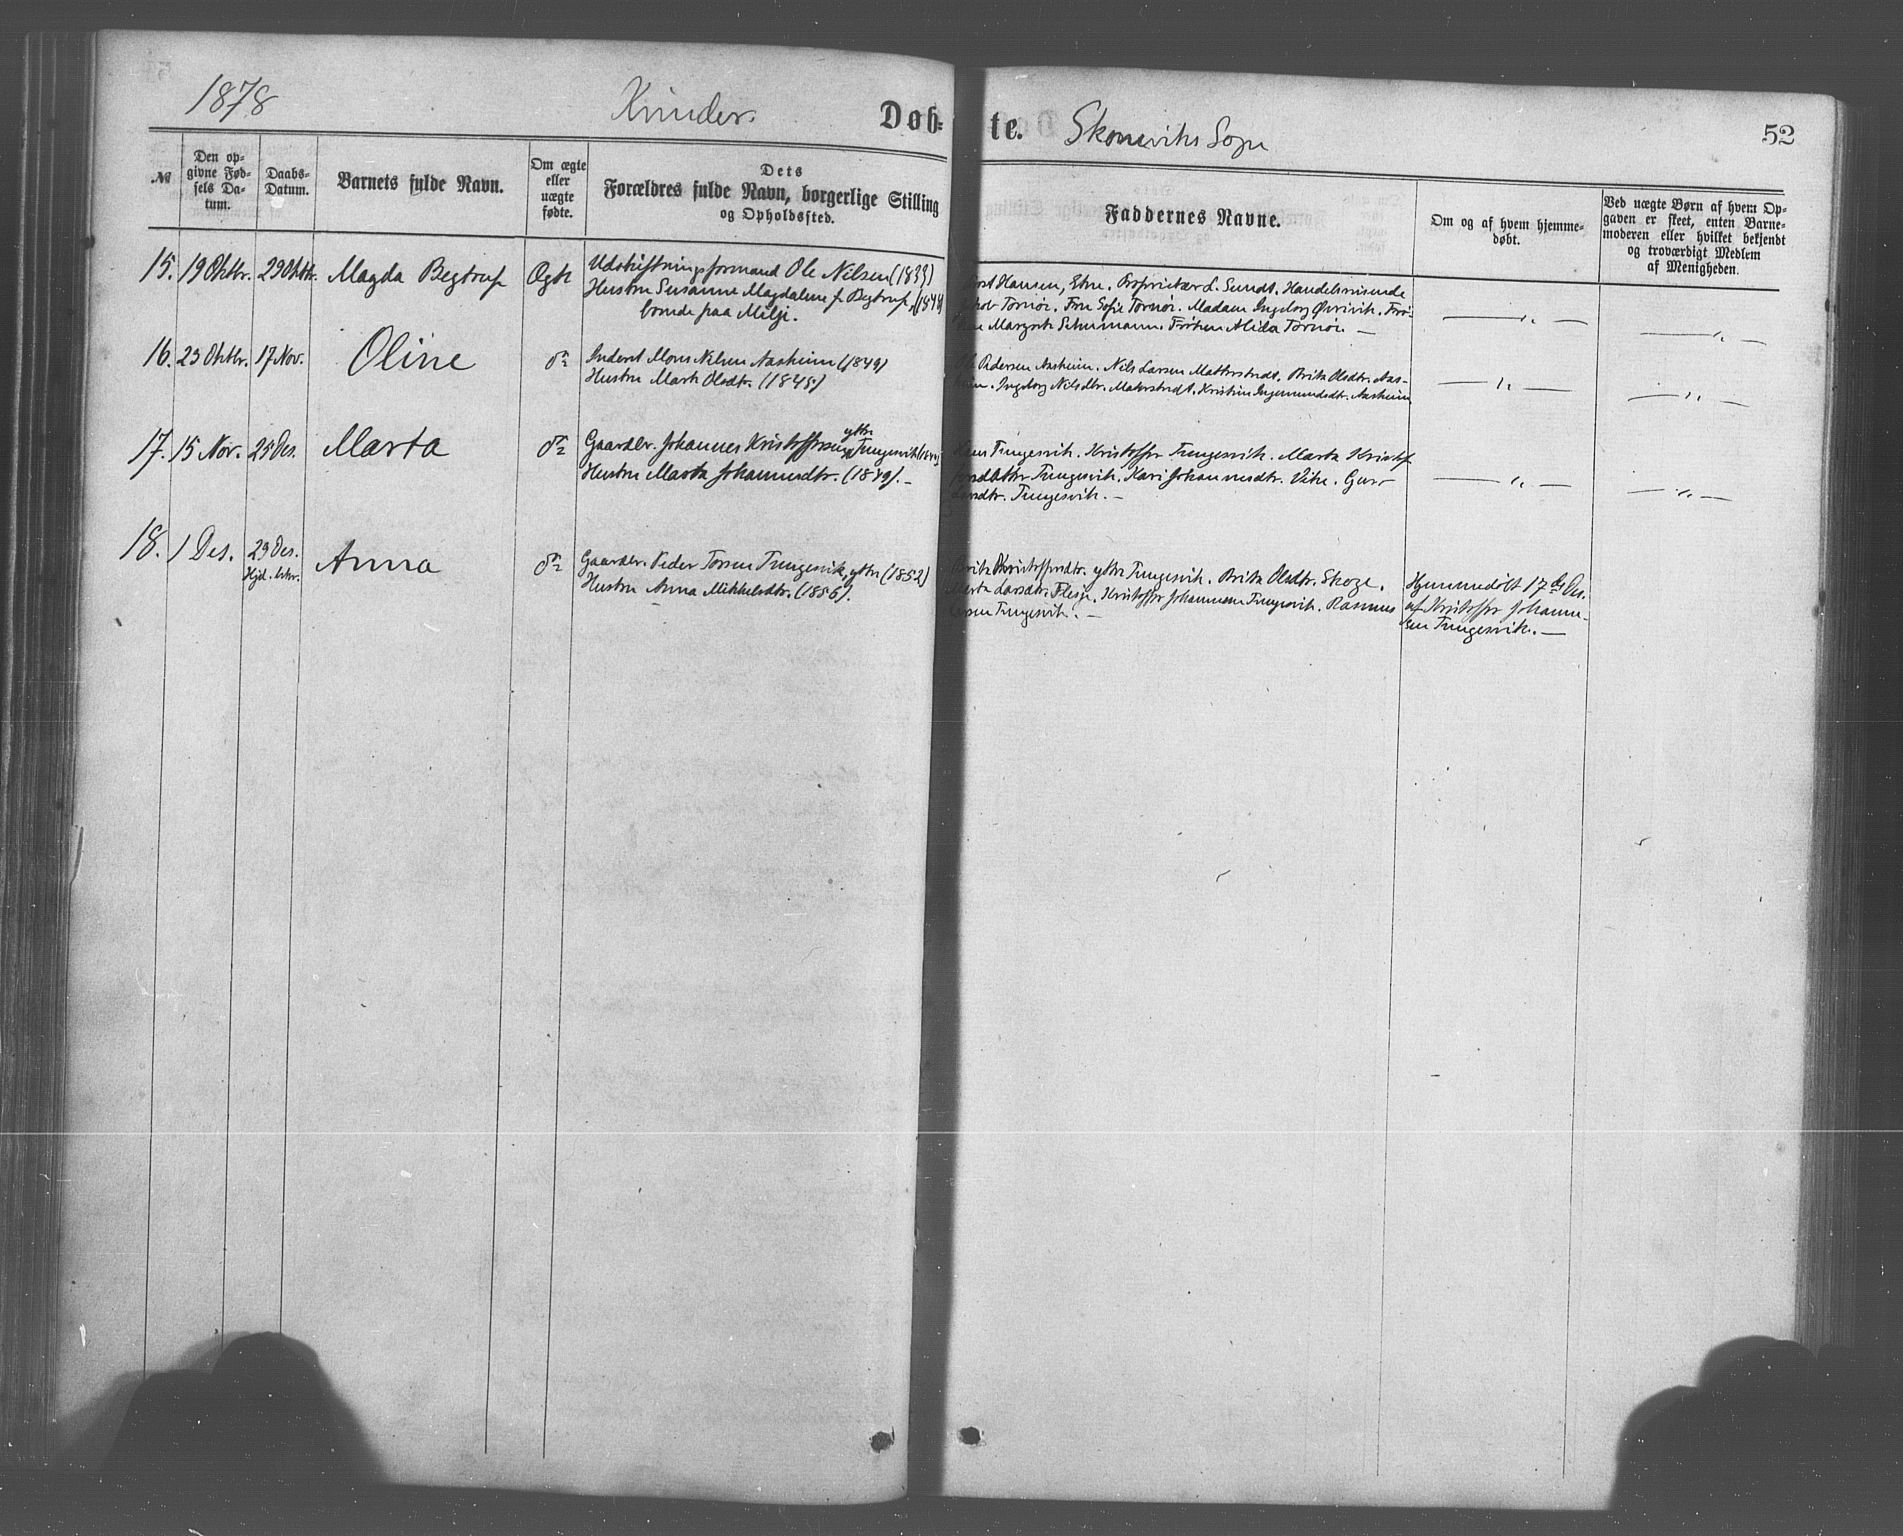 1878 Kvinder. Døb- te. Skoneviks Sogn 52
№
Den op-
givne Fød-
sels Da-
tum.
Daabs-
Datum.
Barnets fulde Navn.
Om ægte
eller
uægte
fødte.
Dets
Forældres fulde Navn, borgerlige Stilling
og Opholdssted.
Faddernes Navne.
Om og af hvem hjemme-
døbt.
Ved uægte Børn af hvem Op-
gaven er skeet, enten Barne-
moderen eller hvilket bekjendt
og troværdigt Medlem
af Menigheden.
15. 19 Oktbr. 29 Oktbr. Magda Begtrup Ægte
Udskiftningsformand Ole Nilsen (1833)
Hustru Susanne Magdalene f. Begtrup, (1844)
boende paa Milje.
Hansen, Etne. Proprietær L. Sundt. Handelsreisende
Tornøe. Fru Sofie Tornøe. Madam Ingeborg Øvrevik. Frø-
Margrete Schumann. Frøken Alida Tornøe. —
— „ —
— „ —
16. 23 Oktbr. 17 Nov. Oline do
Inderst Mons Nilsen Aasheim (1849)
Hustru Marta Olsdtr. (1845)
Ole Pedersen Aasheim. Nils Larsen Matterstedt. Brita Olsdtr. Aas-
heim. Ingeborg Nilsdtr. Matterstedt. Kristine Ingemundsdtr. Aasheim.
— „ —
— „ —
17. 15 Nov. 25 Des. Marta do
Gaardbr. Johannes Kristoffersen ytre Tungesvik
Hustru Marta Johannesdtr. (1849). —
Tungesvik. Kristoffer Tungesvik. Marta Kristof-
fersdtr Tungesvik. Kari Johannesdtr. Vike. Guro
Larsdtr. Tungesvik. —
— „ —
— „ —
18. 1 Des. 29 Des.
Hjd. bekr.
Anna do
Gaardbr. Peder Torsen Tungesvik, ytre (1852)
Hustru Anna Mikkelsdtr. (1856).
Brita Kristoffersdtr. ytre Tungesvik. Brita Olsdtr. Skoge.
Marta Larsdtr. Flesje. Kristoffer Johannesen Tungesvik. Rasmus
Larsen Tungesvik. —
Hjemmedøbt 17de Des.
af Kristoffer Johanne-
sen Tungesvik. —